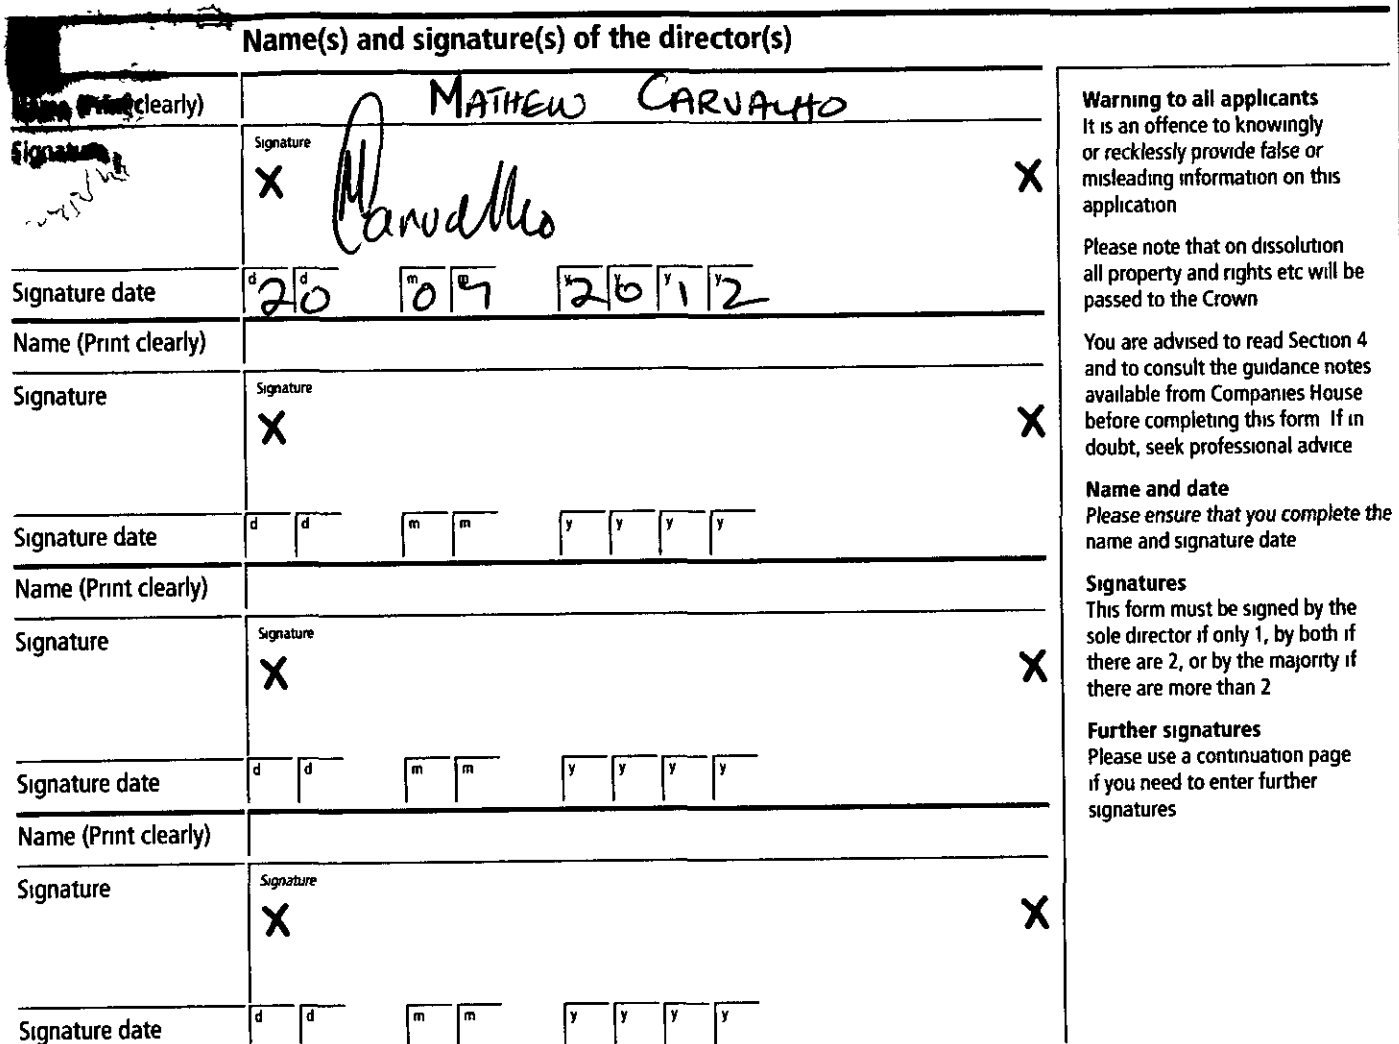 Name(s) and signature(s) of the director(s)
Name (Print clearly)
MATHEW CARVALHO
Signature
Signature
X
Carvalho
X
Signature date
d d m m y y y y
20 09 2012
Name (Print clearly)
Signature
Signature
X
X
Signature date
d d m m y y y y
Name (Print clearly)
Signature
Signature
X
X
Signature date
d d m m y y y y
Name (Print clearly)
Signature
Signature
X
X
Signature date
d d m m y y y y
Warning to all applicants
It is an offence to knowingly
or recklessly provide false or
misleading information on this
application
Please note that on dissolution
all property and rights etc will be
passed to the Crown
You are advised to read Section 4
and to consult the guidance notes
available from Companies House
before completing this form If in
doubt, seek professional advice
Name and date
Please ensure that you complete the
name and signature date
Signatures
This form must be signed by the
sole director if only 1, by both if
there are 2, or by the majority if
there are more than 2
Further signatures
Please use a continuation page
if you need to enter further
signatures